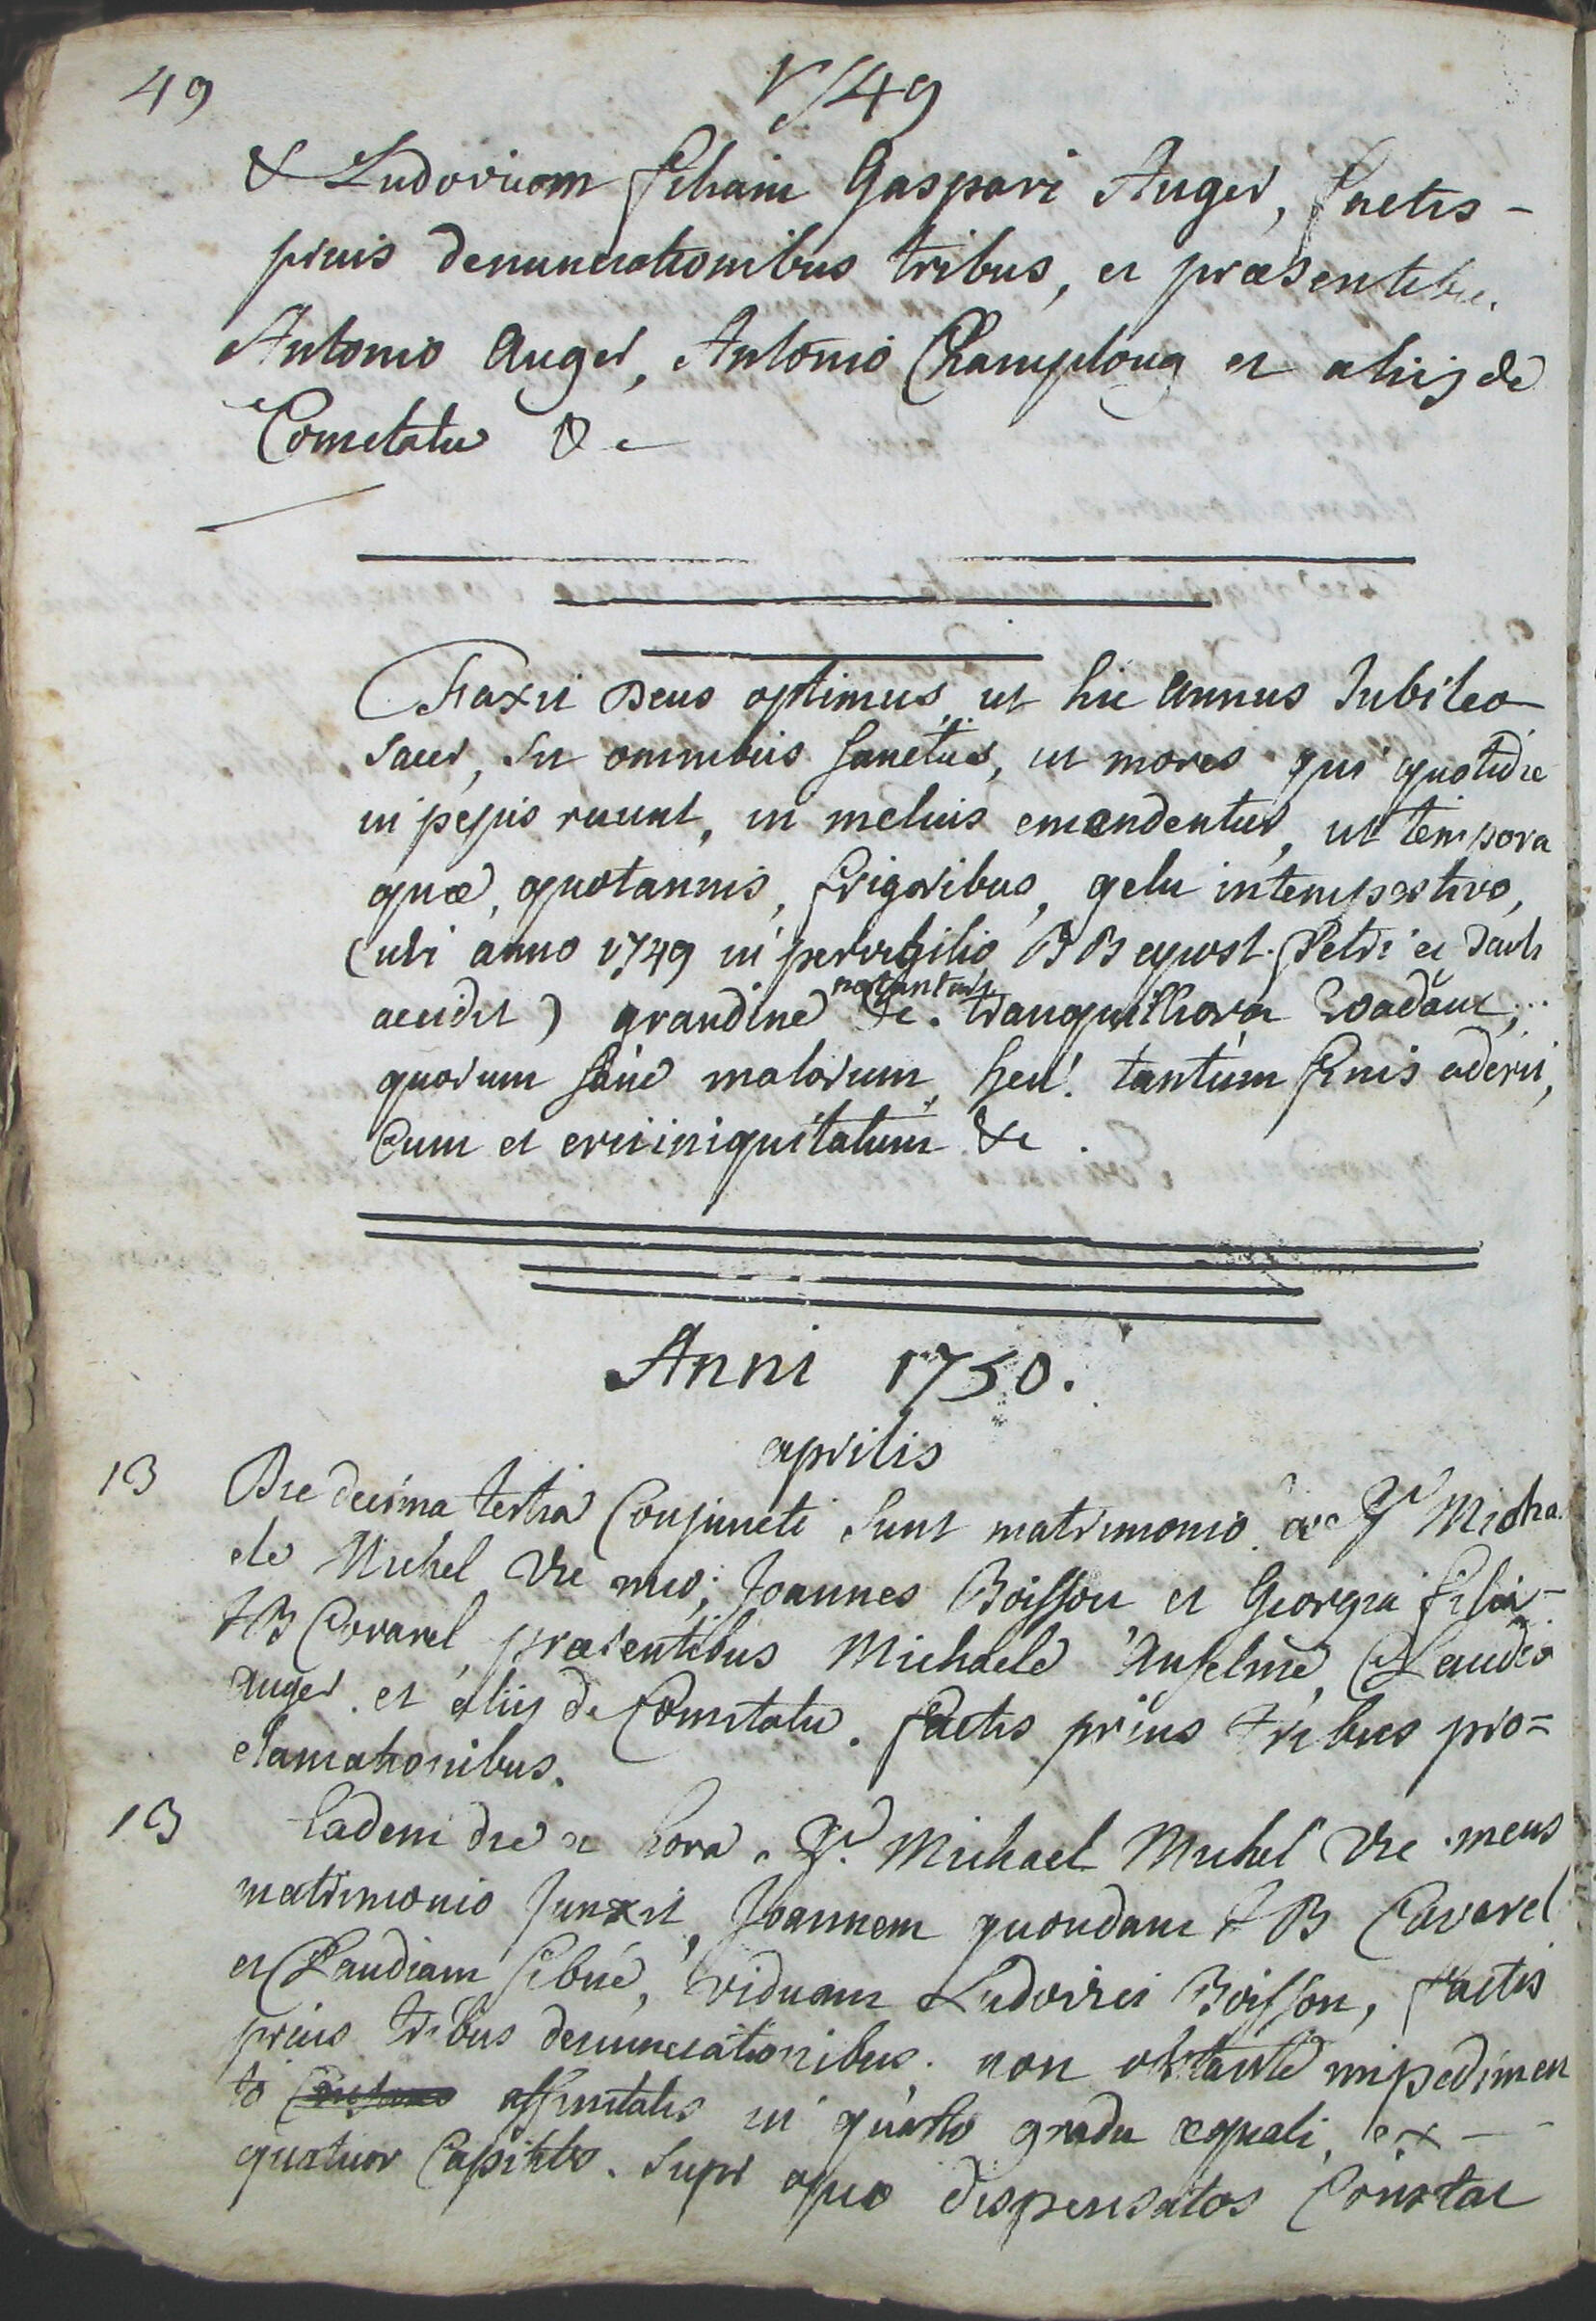 49
1749
& Ludovicam filiam Gaspari Auger, factis -
prius denunciationibus tribus, et præsentibus
Antonio Auger, Antonio Champlong et aliis de
Comitatu &c
Faxit Deus optimus, ut hic annus Jubileo
sacer, sit omnibus sanctus, ut mores qui quotidie
in pejus ruunt, in melius emendentur, ut tempora
quæ, quotannis, frigoribus, gelu intempestivo,
(ubi anno 1749 in pervigilio BB apost. Petri et Pauli
accidit) grandine &c. tranquilliora
quorum sane malorum, heu! tantum finis aderit,
cum et erit iniquitatum &c.
Anni 1750.
aprilis
13 Die decima tertia Conjuncti sunt matrimonio a Micha
ele Michel Vic meo; Joannes Boisson et Georgia filia -
JB Covarel, præsentibus Michaele Anselme, Claudio
Auger. et aliis de Comitatu. factis prius tribus pro=
clamationibus.
13 Eadem die et hora. Michael Michel Vic meus
matrimonio Junxit, Joannem quondam JB Covarel
et Claudiam Sibue, viduam Ludovici Boisson, factis
prius tribus denunciationibus. non obstante impedimen
to affinitatis in quarto gradu æquali, ex -
quatuor Capitibs. super quo dispensatos Constat